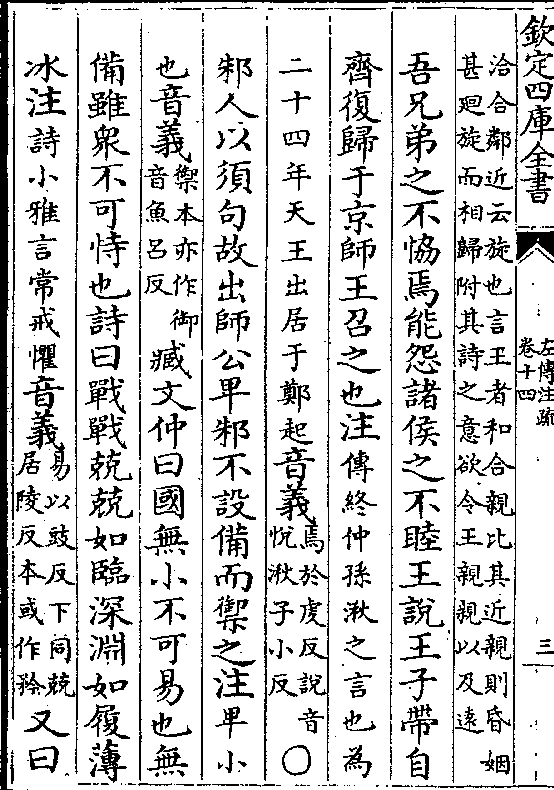 欽定四庫全書
左傳注疏
卷十四
三
洽合鄰近云旋也言王者和合親比其近親則昏姻
甚廻旋而相歸附其詩之意欲令王親親以及遠
吾兄弟之不恊焉能怨諸侯之不睦王說王子帶自
齊復歸于京師王召之也注傳終仲孫湫之言也為
二十四年天王出居于鄭起音義焉於䖍反說音
悅湫子小反〇
邾人以須句故出師公卑邾不設備而禦之注卑小
也音義禦本亦作御
音魚呂反臧文仲曰國無小不可易也無
備雖衆不可恃也詩曰戰戰兢兢如臨深淵如履薄
冰注詩小雅言常戒懼音義易以豉反下同兢
居陵反本或作矜又曰